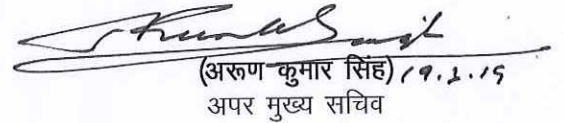 (अरूण कुमार सिंह) 19.1.19
अपर मुख्य सचिव